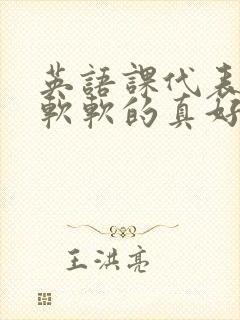 英語課代表
軟軟的真好
王洪亮